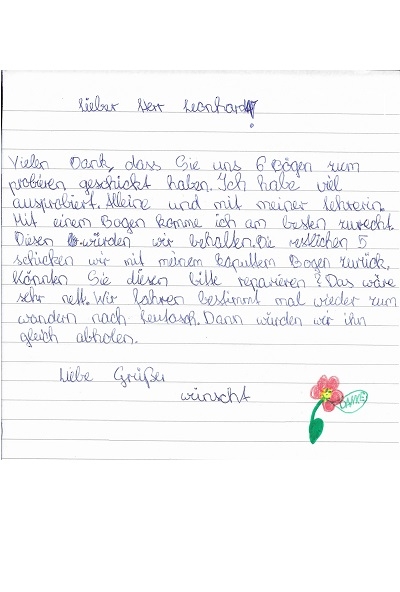 Lieber Herr Leonhardt!
Vielen Dank, dass Sie uns 6 Bögen zum
probieren geschickt haben. Ich habe viel
ausprobiert. Alleine und mit meiner Lehrerin.
Mit einem Bogen komme ich am besten zurecht.
Diesen würden wir behalten. Die restlichen 5
schicken wir mit meinem kaputtem Bogen zurück.
Könnten Sie diesen bitte reparieren? Das wäre
sehr nett. Wir fahren bestimmt mal wieder zum
wandern nach Leutasch. Dann würden wir ihn
gleich abholen.
Liebe Grüße
wünscht
DANKE